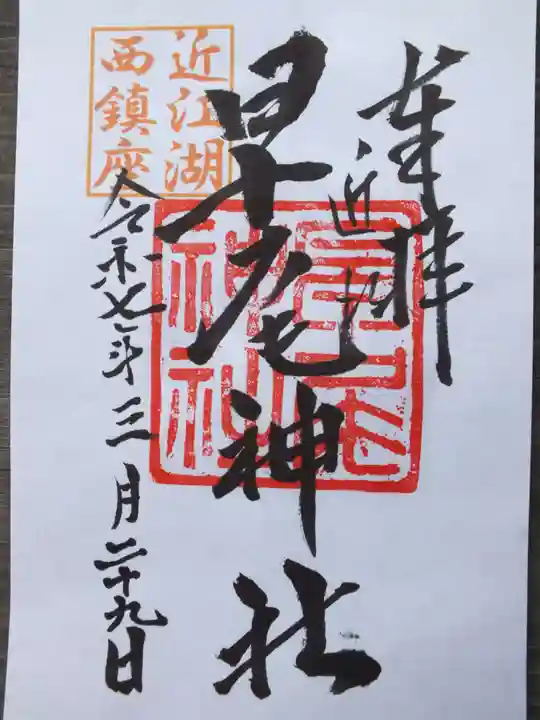 奉拝
近江
早尾神社
早尾
神社
近江湖
西鎮座
令和七年三月二十九日